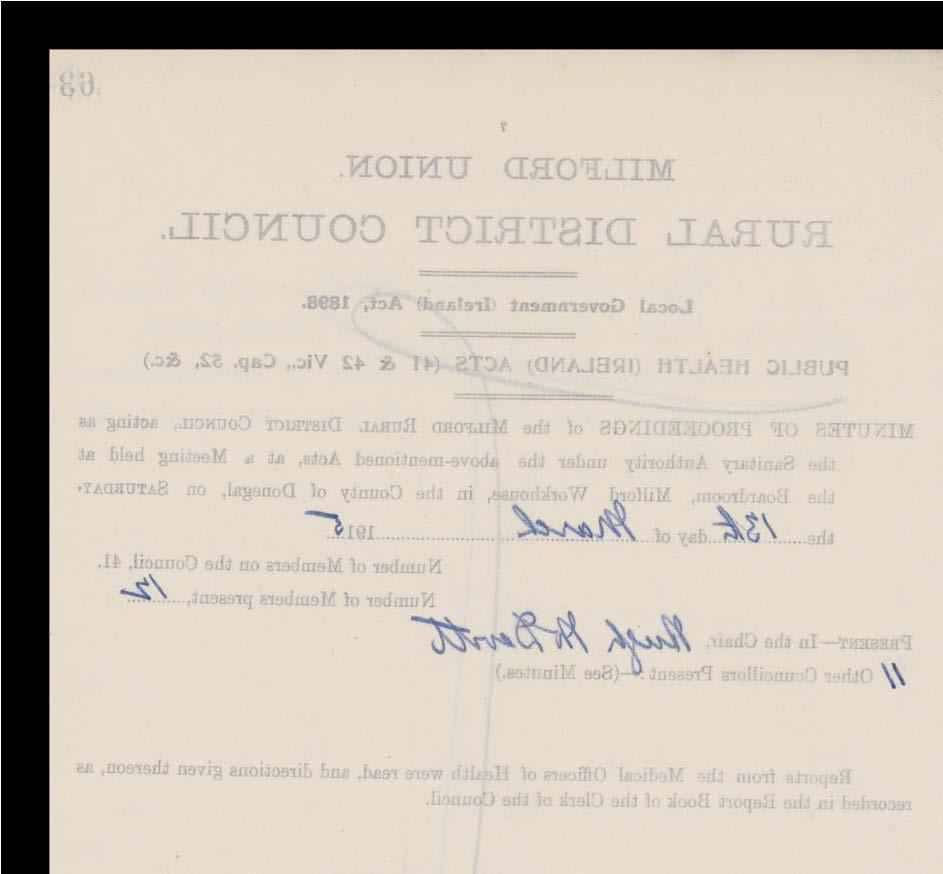 63
MILFORD UNION.
RURAL DISTRICT COUNCIL.
Local Government (Ireland) Act, 1898.
PUBLIC HEALTH (IRELAND) ACTS (41 & 42 Vic., Cap. 52, &c.)
MINUTES OF PROCEEDINGS of the MILFORD RURAL DISTRICT COUNCIL, acting as
the Sanitary Authority under the above-mentioned Acts, at a Meeting held at
the Boardroom, Milford Workhouse, in the County of Donegal, on SATURDAY,
the 13th day of March 1915
Number of Members on the Council, 41.
Number of Members present, 12
PRESENT—In the Chair, Hugh McDevitt
11 Other Councillors Present:—(See Minutes.)
Reports from the Medical Officers of Health were read, and directions given thereon, as
recorded in the Report Book of the Clerk of the Council.